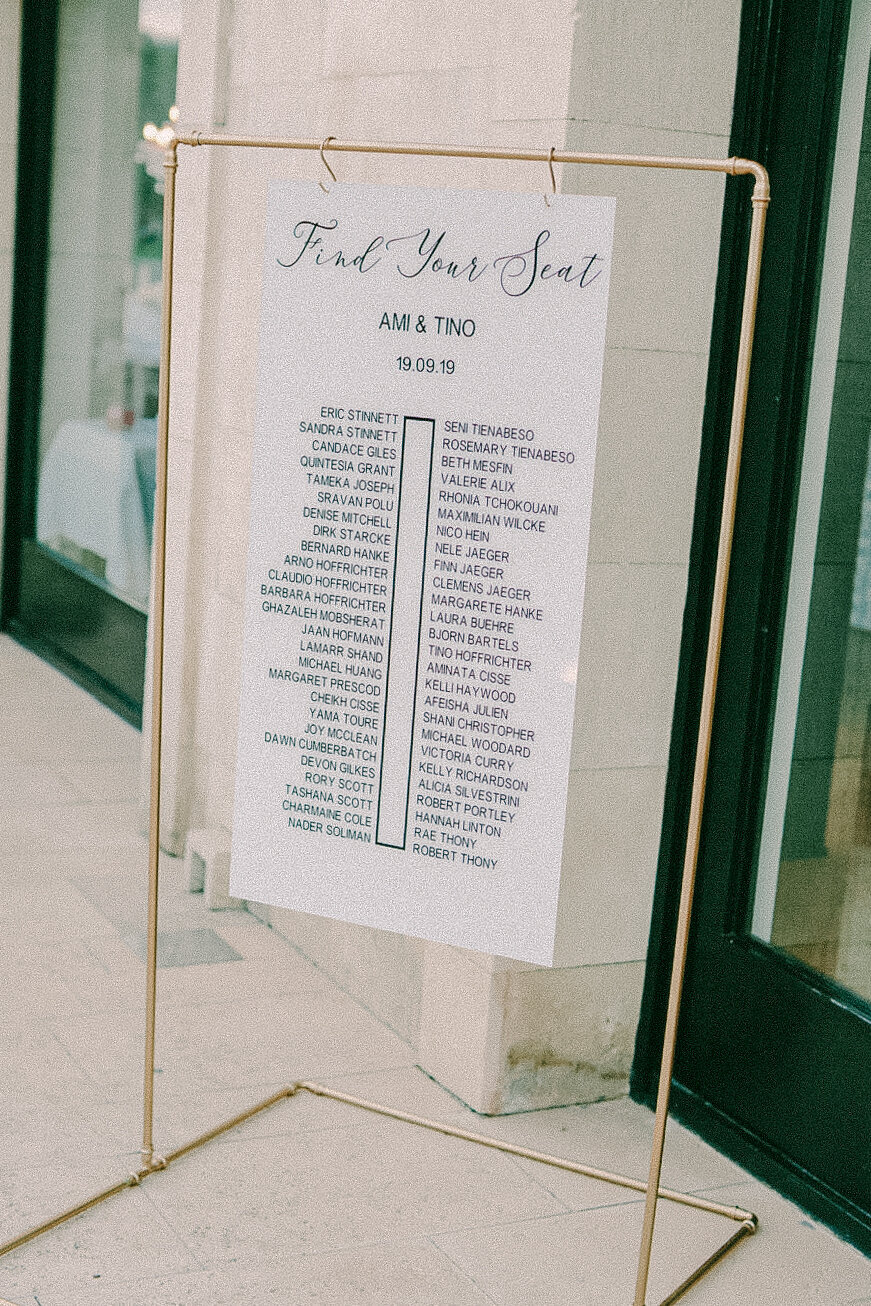 Find Your Seat
AMI & TINO
19.09.19
ERIC STINNETT
SANDRA STINNETT
CANDACE GILES
QUINTESIA GRANT
TAMEKA JOSEPH
SRAVAN POLU
DENISE MITCHELL
DIRK STARCKE
BERNARD HANKE
ARNO HOFFRICHTER
CLAUDIO HOFFRICHTER
BARBARA HOFFRICHTER
GHAZALEH MOBSHERAT
JAAN HOFMANN
LAMARR SHAND
MICHAEL HUANG
MARGARET PRESCOD
CHEIKH CISSE
YAMA TOURE
JOY MCCLEAN
DAWN CUMBERBATCH
DEVON GILKES
RORY SCOTT
TASHANA SCOTT
CHARMAINE COLE
NADER SOLIMAN
SENI TIENABESO
ROSEMARY TIENABESO
BETH MESFIN
VALERIE ALIX
RHONIA TCHOKOUANI
MAXIMILIAN WILCKE
NICO HEIN
NELE JAEGER
FINN JAEGER
CLEMENS JAEGER
MARGARETE HANKE
LAURA BUEHRE
BJORN BARTELS
TINO HOFFRICHTER
AMINATA CISSE
KELLI HAYWOOD
AFEISHA JULIEN
SHANI CHRISTOPHER
MICHAEL WOODARD
VICTORIA CURRY
KELLY RICHARDSON
ALICIA SILVESTRINI
ROBERT PORTLEY
HANNAH LINTON
RAE THONY
ROBERT THONY